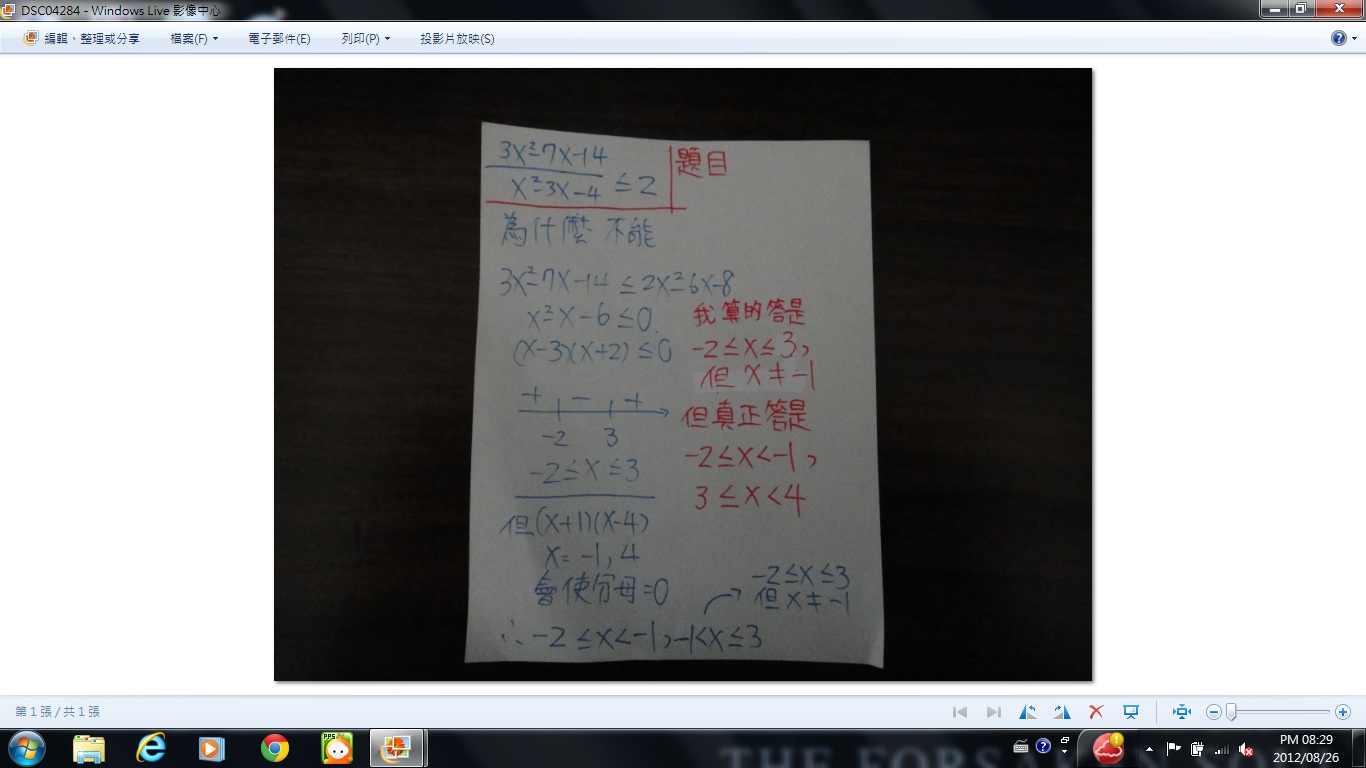 DSC04284 - Windows Live 影像中心
編輯、整理或分享 檔案(F) 電子郵件(E) 列印(P) 投影片放映(S)
3x²-7x-14
x²-3x-4 ≤ 2
題目
為什麼 不能
3x²-7x-14 ≤ 2x²-6x-8
x²-x-6 ≤ 0
(x-3)(x+2) ≤ 0
+ - +
-2 3
-2 ≤ x ≤ 3
但(x+1)(x-4)
x = -1, 4
會使分母=0
∴ -2 ≤ x < -1, -1 < x ≤ 3
-2 ≤ x ≤ 3
但 x ≠ -1
我算的答是
-2 ≤ x ≤ 3,
但 x ≠ -1
但真正答是
-2 ≤ x < -1,
3 ≤ x < 4
第 1 張 / 共 1 張
PPS
THE FORSAKEN
PM 08:29
2012/08/26